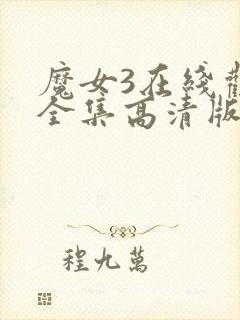 魔女3在綫觀
全集高清版
程九萬